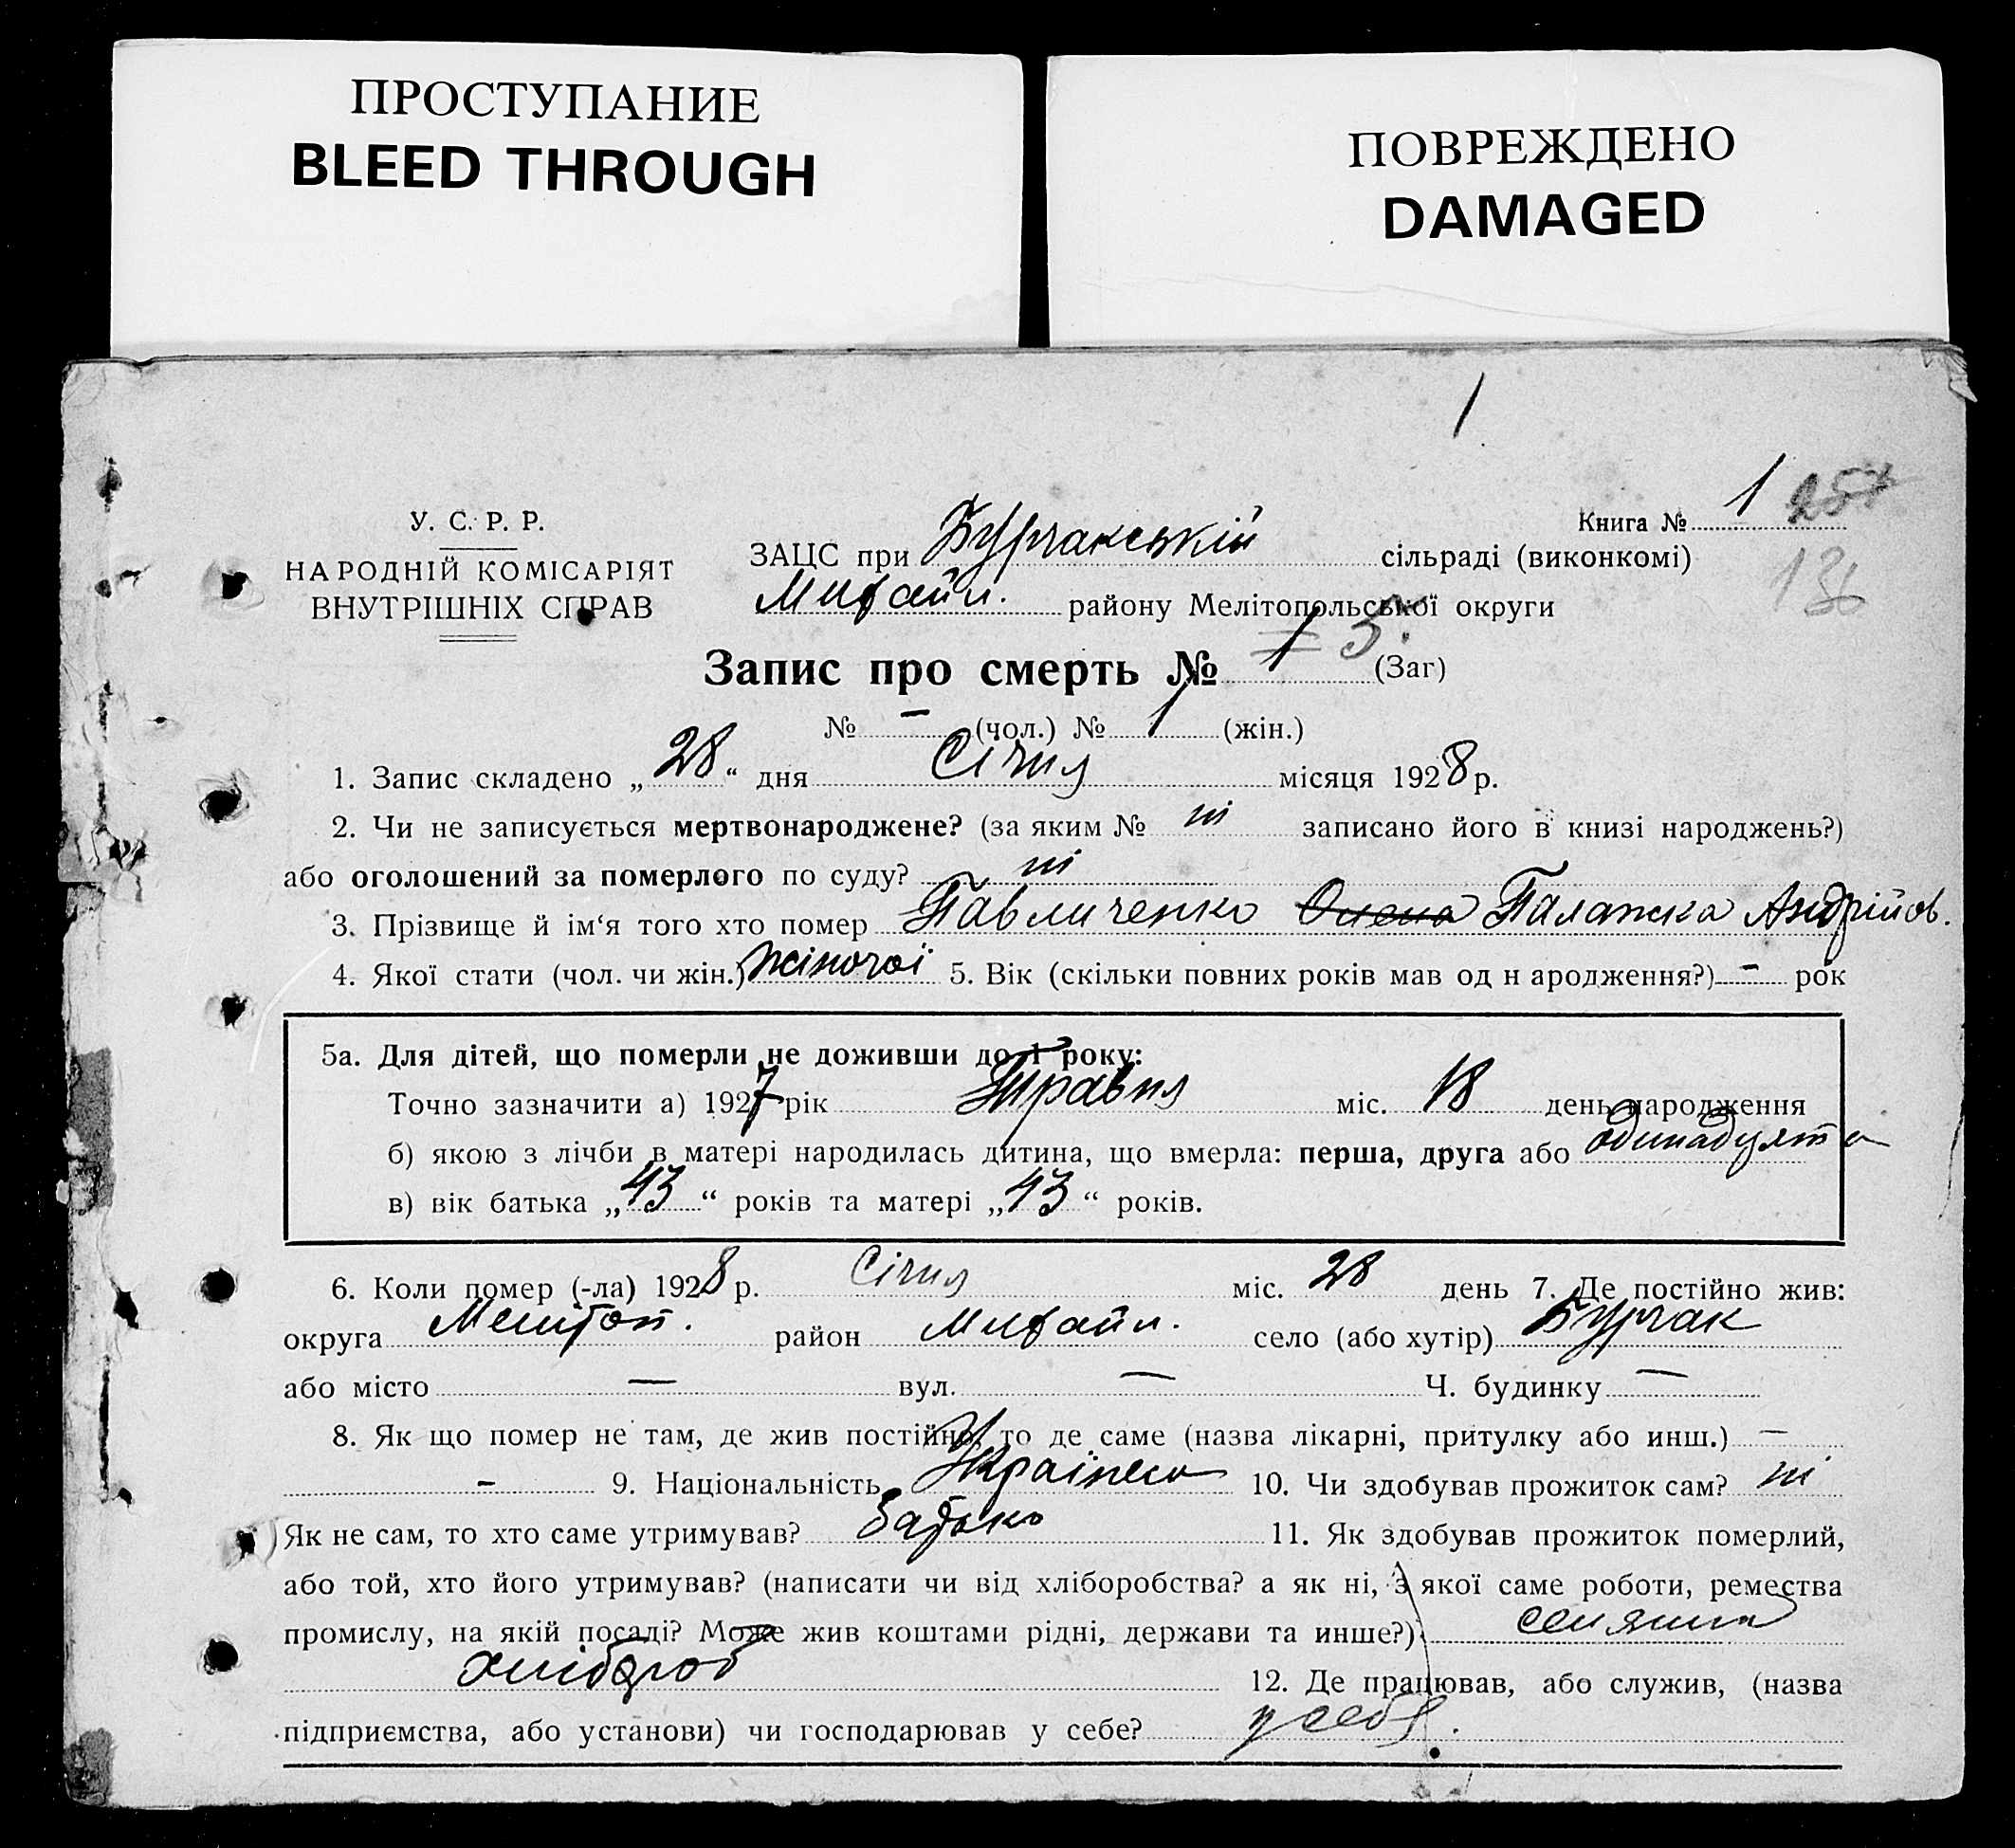 ПРОСТУПАНИЕ
BLEED THROUGH
ПОВРЕЖДЕНО
DAMAGED
1
У. С. Р. Р.
НАРОДНІЙ КОМІСАРІЯТ
ВНУТРІШНІХ СПРАВ
Книга № 1 257
136
ЗАЦС при Бурчакській сільраді (виконкомі)
Михайл. району Мелітопольської округи
Запис про смерть № 1 5 (Заг)
№ – (чол.) № 1 (жін.)
1. Запис складено „28“ дня Січня місяця 1928 р.
2. Чи не записується мертвонароджене? (за яким № ні записано його в книзі народжень?)
або оголошений за померлого по суду? ні
3. Прізвище й ім‘я того хто помер Павличенко Олена Палажка Андрійов.
4. Якої стати (чол. чи жін.) жіночої 5. Вік (скільки повних років мав од н ародження?) – рок
5а. Для дітей, що померли не доживши до 1 року:
Точно зазначити а) 1927 рік Травня міс. 18 день народження
б) якою з лічби в матері народилась дитина, що вмерла: перша, друга або одинадцята
в) вік батька „43“ років та матері „43“ років.
6. Коли помер (-ла) 1928 р. Січня міс. 28 день 7. Де постійно жив:
округа Меліtоп. район Михайл. село (або хутір) Бурчак
або місто — вул. — Ч. будинку —
8. Як що помер не там, де жив постійно, то де саме (назва лікарні, притулку або инш.) —
– 9. Національність Українка 10. Чи здобував прожиток сам? ні
Як не сам, то хто саме утримував? батько 11. Як здобував прожиток померлий,
або той, хто його утримував? (написати чи від хліборобства? а як ні, з якої саме роботи, ремества
промислу, на якій посаді? Може жив коштами рідні, держави та инше?) селянин
хлібороб 12. Де працював, або служив, (назва
підприємства, або установи) чи господарював у себе? у себе.